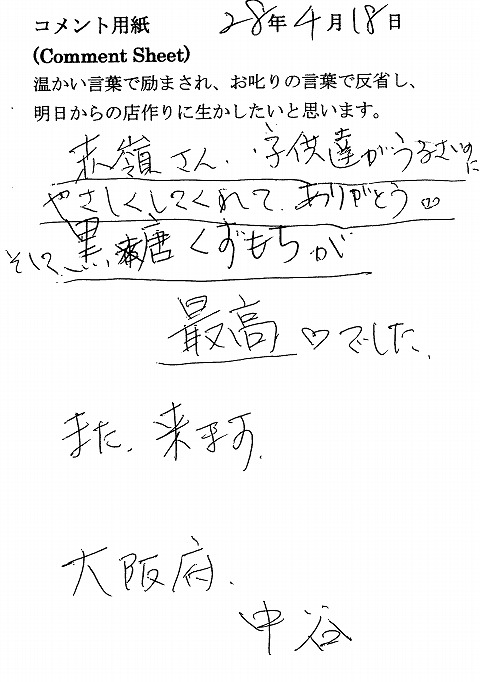 コメント用紙 28年4月18日
(Comment Sheet)
温かい言葉で励まされ、お叱りの言葉で反省し、
明日からの店作りに生かしたいと思います。
赤嶺さん、子供達がうるさいのに
やさしくしてくれて、ありがとう♡
そして、黒糖くずもちが
最高♡でした。
また、来ます。
大阪府、
中谷